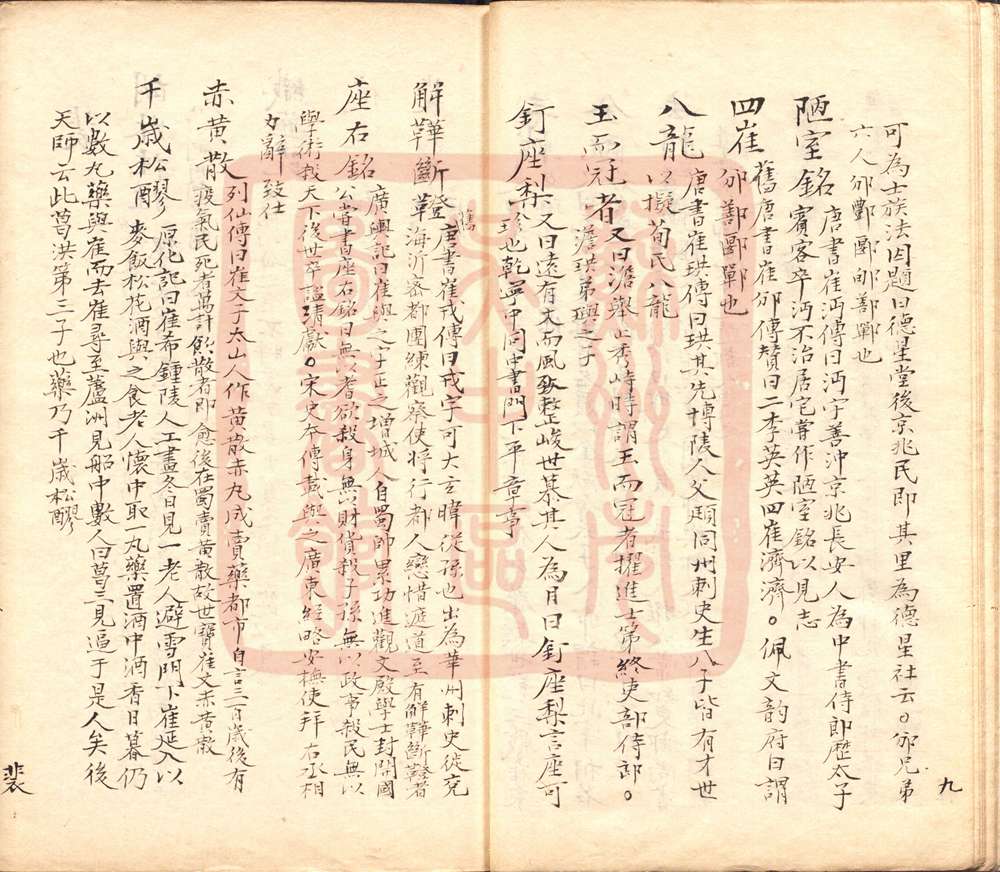 可為士族法因題曰德星堂後京兆民即其里為德星社云。邠兄弟
六人邠酆郾郇鄯鄲也
陋室銘 唐書崔沔傳曰沔字善沖京兆長安人為中書侍郎歷太子
賓客卒沔不治居宅嘗作陋室銘以見志
四崔 舊唐書崔邠傳贊曰二李英英四崔濟濟。佩文韵府曰謂
邠鄯郾鄲也
八龍 唐書崔珙傳曰珙其先博陵人父頲同州刺史生八子皆有才世
以擬荀氏八龍
玉而冠者 又曰澹舉止秀峙時謂玉而冠者擢進士第終吏部侍郎。
澹珙弟璵之子
飣座梨 又曰遠有文而風致整峻世慕其人為目曰飣座梨言座可
珍也乾寧中同中書門下平章事
解鞾斷鐙 舊唐書崔戎傳曰戎字可大玄暐從孫也出為華州刺史徙兗
海沂密都團練觀察使將行都人戀惜遮道至有解鞾斷鞶者
座右銘 廣輿記曰崔與之字正之增城人自蜀帥累功進觀文殿學士封開國
公嘗書座右銘曰無以耆欲殺身無以財貨殺子孫無以政事殺民無以
學術殺天下後世卒謚清獻。宋史本傳載與之廣東經略安撫使拜右丞相
力辭致仕
赤黃散 列仙傳曰崔文子太山人作黃散赤丸成賣藥都市自言三百歲後有
疫氣民死者萬計飲散者即愈後在蜀賣黃散故世寶崔文赤黃散
千歲松醪 原化記曰崔希鍾陵人工畫冬日見一老人避雪門下崔延入以
麥飯松花酒與之食老人懷中取一丸藥置酒中酒香日暮仍
以數丸藥與崔而去崔尋至蘆洲見船中數人曰葛三見逼于是人矣後
天師云此葛洪第三子也藥乃千歲松醪
九
裴